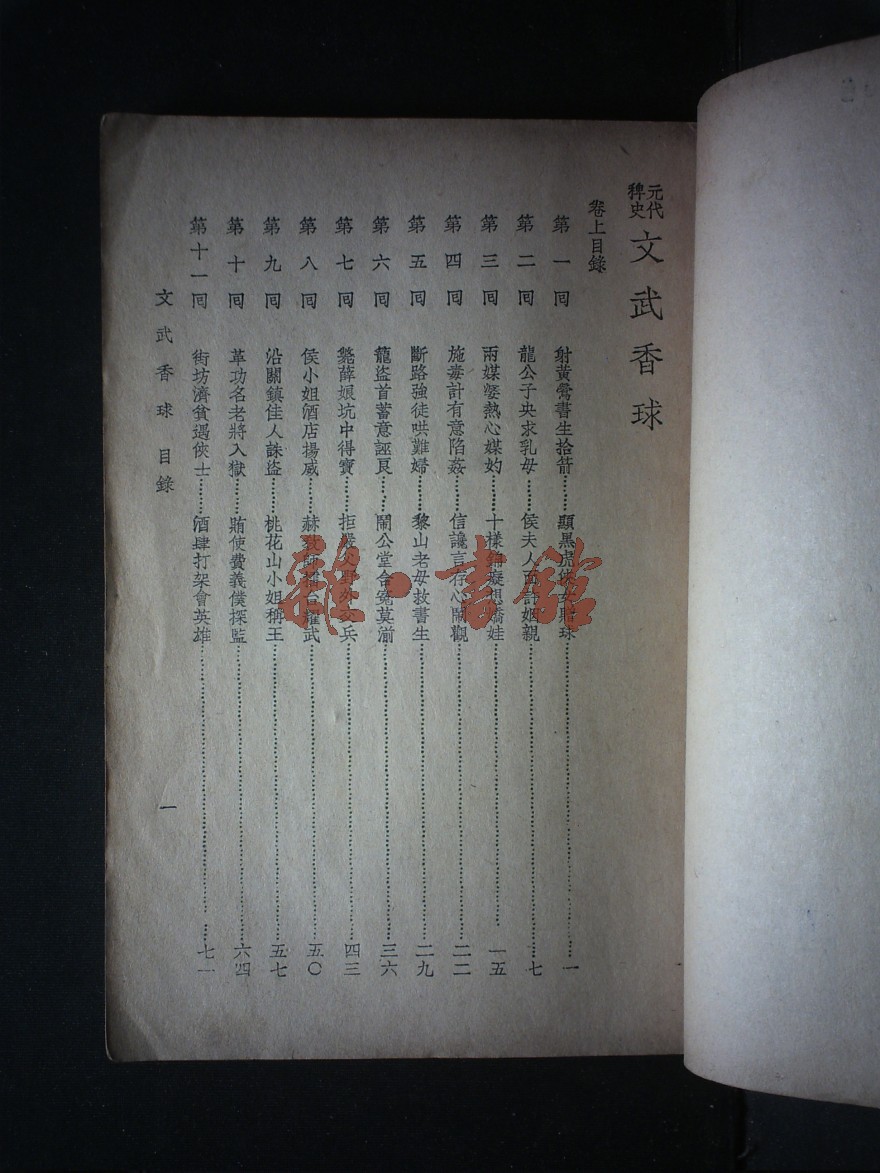 元代稗史 文武香球
卷上目錄
第一回 射黃鶯書生拾箭……顯黑虎俠女贈球……一
第二回 龍公子央求乳母……侯夫人面許姻親……七
第三回 兩媒婆熱心媒妁……十樣錦癡想嬌娃……一五
第四回 施毒計有意陷姦……信讒言存心鬧觀……二二
第五回 斷路強徒哄難婦……黎山老母救書生……二九
第六回 龍盜首蓄意誣良……鬧公堂含冤莫湔……三六
第七回 毙薛娘坑中得寶……拒 兵……四三
第八回 侯小姐酒店揚威……赫教師 耀武……五〇
第九回 沿關鎮佳人誅盜……桃花山小姐稱王……五七
第十回 革功名老將入獄……賄使費義僕探監……六四
第十一回 街坊濟貧遇俠士……酒肆打架會英雄……七一
文武香球 目錄
一
雜·書館